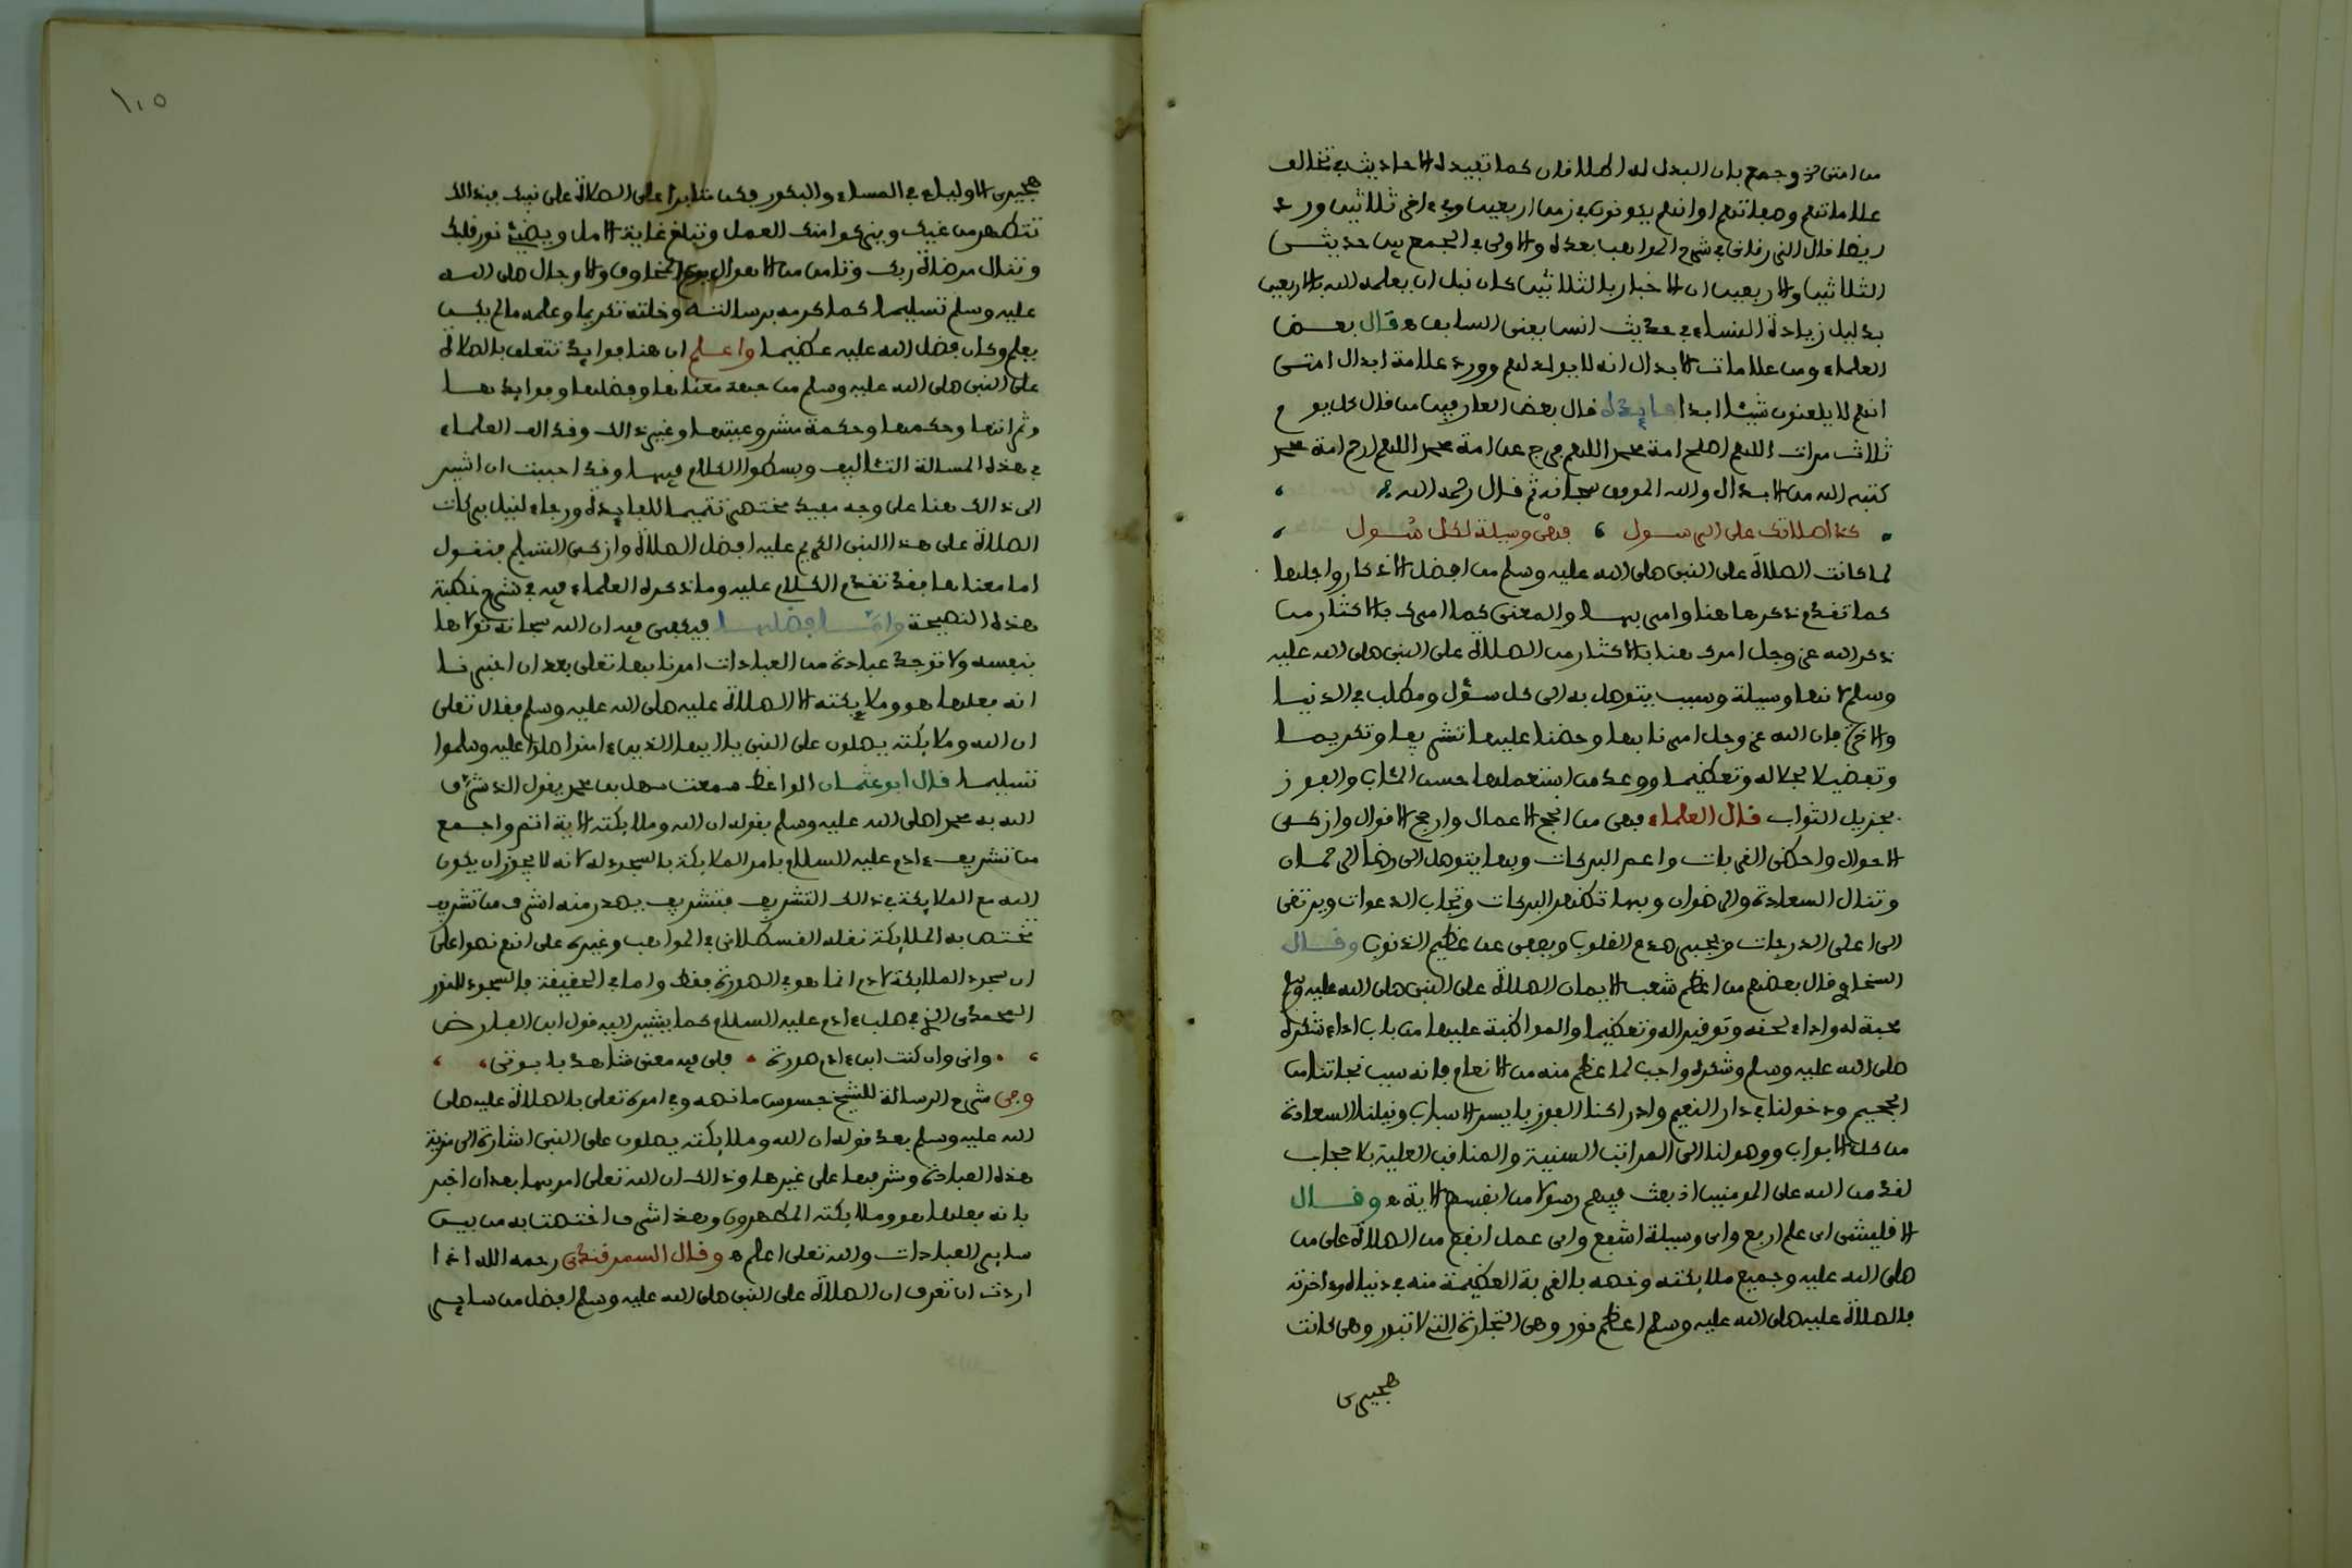 من امتى ذ وجمع بان البدل له اطلاقان كما تفيده الاحاديث في تخالف
علاماتهم وصفاتهم او انهم يكونون في زمن اربعين وفي ءاخر ثلاثين ورد
ايضا قال الزرقاني في شرح المواهب بعده والاولى في الجمع بين حديثى
الثلاثين والاربعين ان الاخبار بالثلاثين كان قبل ان يعلمه الله بالاربعين
بدليل زيادة النساء في حديث انس يعنى السابق ه قال بعض
العلماء ومن علامات الابدال انه لا يولد لهم وورد علامة ابدال امتى
انهم لا يلعنون شيئا ابدا فايدة قال بعض العارفين من قال كل يوم
ثلاث مرات اللهم اصلح امة محمد اللهم فرج عن امة محمد اللهم ارحم امة محمد
كتبه الله من الابدال والله الموفق سبحانه ثم قال رحمه الله
كذا صلاتك على الرسول فهي وسيلة لكل سول
لما كانت الصلاة على النبى صلى الله عليه وسلم من افضل الاذكار واجلها
كما تقدم ذكرها هنا وامر بها والمعنى كما امرك بالاكثار من
ذكر الله عز وجل امرك هنا بالاكثار من الصلاة على النبى صلى الله عليه
وسلم لانها وسيلة وسبب يتوصل به الى كل سؤل ومطلب في الدنيا
والاخرة فان الله عز وجل امرنا بها وحضنا عليها تشريفا وتكريما
وتفضيلا لجلاله وتعظيما ووعد من استعملها حسن المئاب والفوز
بجزيل الثواب قال العلماء فهي من انجح الاعمال وارجح الاقوال وازكى
الاحوال واحظى القربات واعم البركات وبها يتوصل الى رضا الرحمان
وتنال السعادة والرضوان وبها تظهر البركات وتجاب الدعوات ويرتقى
الى اعلى الدرجات ويجبر صدع القلوب ويعفى عن عظيم الذنوب وقال
السخاوي قال بعضهم من اعظم شعب الايمان الصلاة على النبى صلى الله عليه وسلم
محبة له واداء لحقه وتوقيرا له وتعظيما والمواظبة عليها من باب اداء شكره
صلى الله عليه وسلم وشكره واجب لما عظم منه من الانعام فانه سبب نجاتنا من
الجحيم ودخولنا في دار النعيم وادراكنا الفوز بايسر الاسباب ونيلنا السعادة
من كل الابواب ووصولنا الى المراتب السنية والمناقب العلية بلا حجاب
لقد من الله على المومنين اذ بعث فيهم رسولا من انفسهم الاية ه وقال
الاقليشى اى علم ارفع واى وسيلة اشفع واى عمل انفع من الصلاة على من
صلى الله عليه وجميع ملائكته وخصه بالقربة العظيمة منه في دنياه وءاخرته
فالصلاة عليه صلى الله عليه وسلم اعظم نور وهى التجارة التى لا تبور وهى كانت
هجيرى
١٠٥
هجيرى الاولياء في المساء والبكور فكن مثابرا على الصلاة على نبيك فبذالك
تتطهر من غيك ويزكوا منك العمل وتبلغ غاية الامل ويضئ نور قلبك
وتنال مرضاة ربك وتامن من الاهوال يوم المخاوف والاوجال صلى الله
عليه وسلم تسليما كما كرمه برسالته وخلته تكريما وعلمه ما لم يكن
يعلم وكان فضل الله عليه عظيما واعلم ان هنا فوايد تتعلق بالصلاة
على النبى صلى الله عليه وسلم من جهة معناها وفضلها وفوايدها
وثمراتها وحكمها وحكمة مشروعيتها وغير ذالك وقد الف العلماء
في هذه المسالة التئاليف وبسطوا الكلام فيها وقد احببت ان اشير
الى ذالك هنا على وجه مفيد مختصر تتميما للفايدة ورجاء لنيل بركات
الصلاة على هذا النبى الكريم عليه افضل الصلاة وازكى التسليم فنقول
اما معناها فقد تقدم الكلام عليه وما ذكره العلماء فيه في شرح خطبة
هذه النصيحة واما فضلها فيكفى فيه ان الله سبحانه تولاها
بنفسه ولا توجد عبادة من العبادات امرنا بها تعلى بعد ان اخبرنا
انه فعلها هو وملايكته الا الصلاة عليه صلى الله عليه وسلم فقال تعلى
ان الله وملايكته يصلون على النبى يا ايها الذين ءامنوا صلوا عليه وسلموا
تسليما قال ابو عثمان الواعظ سمعت سهل بن محمد يقول الذى شرف
الله به محمدا صلى الله عليه وسلم بقوله ان الله وملايكته الاية اتم واجمع
من تشريف ءادم عليه السلام بامر الملايكة بالسجود له لانه لا يجوز ان يكون
الله مع الملايكة في ذالك التشريف فتشريف يصدر منه اشرف من تشريف
تختص به الملايكة نقله القسطلانى في المواهب وغيره على انهم نصوا على
ان سجود الملايكة لادم انما هو في الصورة فقط واما في الحقيقة فالسجود للنور
المحمدى الذى في صلب ءادم عليه السلام كما يشير اليه قول ابن الفارض
وانى وان كنت ابن ءادم صورة فلى فيه معنى شاهد بابوتى
وفى شرح الرسالة للشيخ جسوس ما نصه وفي امره تعلى بالصلاة عليه صلى
الله عليه وسلم بعد قوله ان الله وملايكته يصلون على النبى اشارة الى مزية
هذه العبادة وشرفها على غيرها وذالك ان الله تعلى امر بها بعد ان اخبر
بانه فعلها هو وملايكته المطهرون وهذا شرف اختصت به من بين
ساير العبادات والله تعلى اعلم ه وقال السمرقندى رحمه الله اذا
اردت ان تعرف ان الصلاة على النبى صلى الله عليه وسلم افضل من ساير